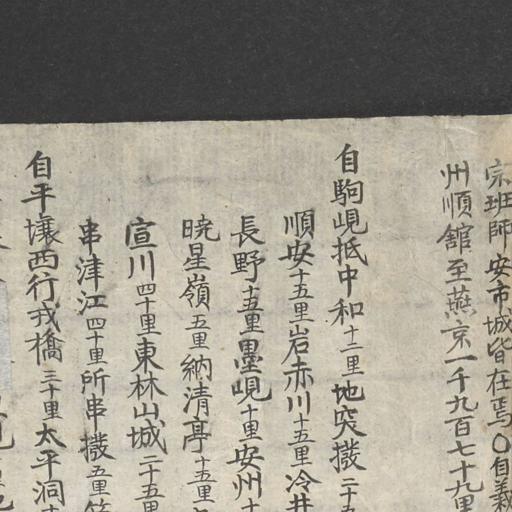 宗班師安市城皆在焉〇自義
州順舘至燕京一千九百七十九里
自駒峴抵中和十二里地突撥二十五
順安十五里岩赤川十五里冷井
長野十五里墨峴十里安州十
暁星嶺五里納清亭十五里
宣川四十里東林山城二十五里
串津江四十里所串撥五里
自平壤西行戎橋三十里太平洞